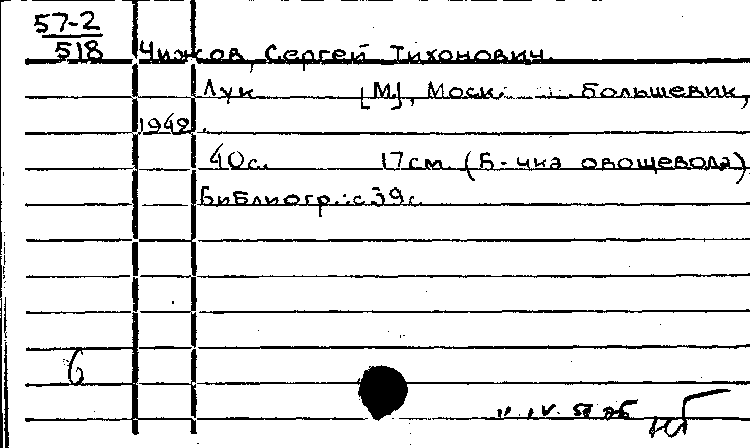 57-2
518 Чижов, Сергей Тихонович.
Лук [М.], Моск. Большевик,
1948.
40с. 17см (Б-чка овощевода)
Библиогр.: с 39с.
6